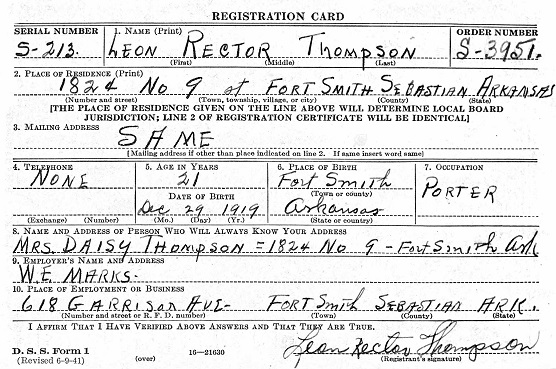 REGISTRATION CARD
SERIAL NUMBER 1. NAME (Print) ORDER NUMBER
S-213. LEON RECTOR THOMPSON S-3951.
(First) (Middle) (Last)
2. PLACE OF RESIDENCE (Print)
1824 No 9 st FORT SMITH SEBASTIAN ARKANSAS
(Number and street) (Town, township, village, or city) (County) (State)
[THE PLACE OF RESIDENCE GIVEN ON THE LINE ABOVE WILL DETERMINE LOCAL BOARD
JURISDICTION; LINE 2 OF REGISTRATION CERTIFICATE WILL BE IDENTICAL]
3. MAILING ADDRESS
SAME
[Mailing address if other than place indicated on line 2. If same insert word same]
4. TELEPHONE 5. AGE IN YEARS 6. PLACE OF BIRTH 7. OCCUPATION
NONE 21 Fort Smith PORTER
(Town or county)
DATE OF BIRTH
Dec 29 1919 Arkansas
(Exchange) (Number) (Mo.) (Day) (Yr.) (State or country)
8. NAME AND ADDRESS OF PERSON WHO WILL ALWAYS KNOW YOUR ADDRESS
MRS. DAISY THOMPSON = 1824 No 9 - Fort Smith Ark
9. EMPLOYER'S NAME AND ADDRESS
W.E. MARKS.
10. PLACE OF EMPLOYMENT OR BUSINESS
618 GARRISON AVE- FORT SMITH SEBASTIAN ARK.
(Number and street or R. F. D. number) (Town) (County) (State)
I AFFIRM THAT I HAVE VERIFIED ABOVE ANSWERS AND THAT THEY ARE TRUE.
Leon Rector Thompson
D. S. S. Form 1
(Revised 6-9-41) (over) 16—21630 (Registrant's signature)